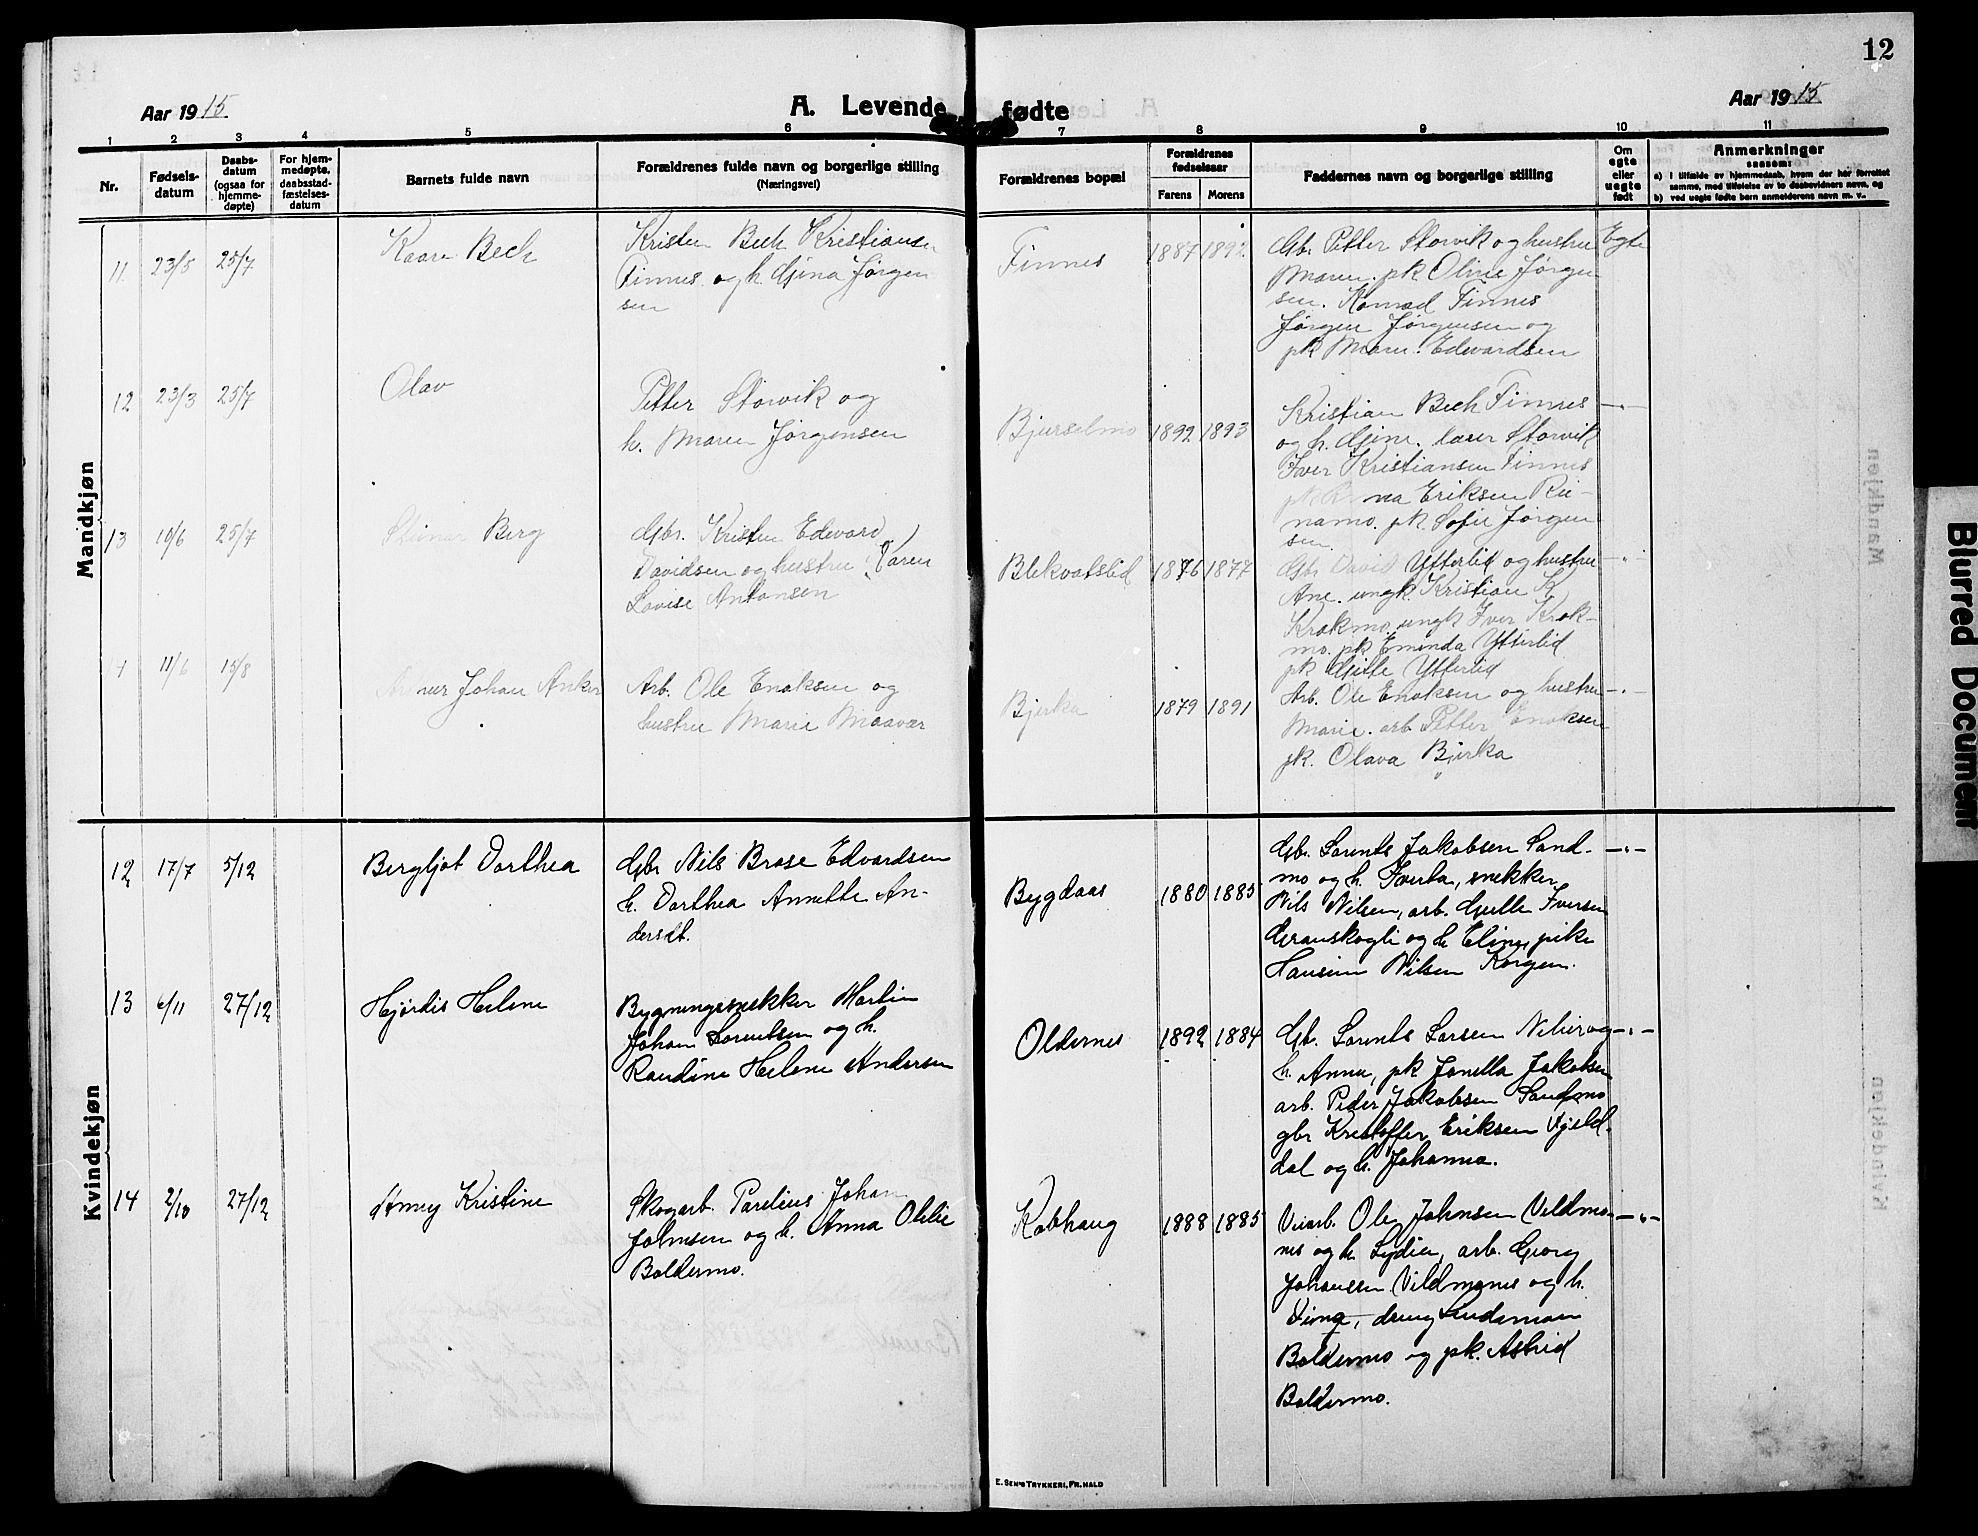 12
Aar 1915
A. Levende fødte
Aar 1915
1 2 3 4 5 6 7 8 9 10 11
Nr.
Fødsels-
datum
Daabs-
datum
(ogsaa for
hjemme-
døpte)
For hjem-
medøpte,
daabsstad-
fæstelses-
datum
Barnets fulde navn
Forældrenes fulde navn og borgerlige stilling
(Næringsvei)
Forældrenes bopæl
Forældrenes
fødselsaar
Farens Morens
Faddernes navn og borgerlige stilling
Om
egte
eller
uegte
født
Anmerkninger
saasom:
a) i tilfælde av hjemmedaab, hvem der har forrettet
samme, med tilføielse av to daabsvidners navn, og
b) ved uegte fødte barn anmelderens navn m. v.
Mandkjøn
11 23/5 25/7
Kaare Bech
Kristen Bech Kristiansen
Finnes og h. Gjina Jørgen
sen
Finnes
1887 1892
Gbr. Petter Storvik og hustru
Maren. pk Oline Jørgen
sen. Konrad Finnes
Jørgen Jørgensen og
pk Maren Edvardsen
Egte
12 23/3 25/7
Olav
Petter Storvik og
h. Maren Jørgensen
Bjurselmo
1892 1893
Kristian Bech Finnes
og h. Gjina. lærer Storvik
Iver Kristiansen Finnes
na Eriksen Ru-
namo. pk Sofie Jørgen
sen.
—"—
13 10/6 25/7
Steinar Berg
Gbr. Kristen Edvard
Davidsen og hustru Karen
Lovise Antonsen
Blekvatslid
1876 1877
Gbr David Ytterlid og hustru
Ane. ungk. Kristian K
Krokmo. ungk Iver Krok-
mo. pk Eminda Ytterlid
pk Gitte Ytterlid
—"—
11/6 15/8
Johan Anker
Arb. Ole Enoksen og
hustru Marie Maavær
Bjerka
1879 1891
Arb. Ole Enoksen og hustru
Marie. arb. Petter Enoksen
pk. Olava Bjerka
—"—
Kvindekjøn
12 17/7 5/12
Bergljot Dorthea
Gbr Nils Brose Edvardsen
h. Dorthea Annette An-
dersdt.
Bygdaas
1880 1885
Gbr. Lorents Jakobsen Sand-
mo og h. Iverta, snekker
Nils Nilsen, arb. Gulle Iversen
Granskogli og h Elina, pike
Hansine Nilsen Korgen.
—"—
13 6/11 27/12
Hjørdis Helene
Bygningssnekker Martin
Johan Lorentsen og h.
Randine Helene Andersen
Oldernes
1892 1884
Gb. Lorents Larsen og
h. Anna, pk Jonella Jakobsen
arb. Peder Jakobsen Sandmo
gbr Kristoffer Eriksen Fjeld-
dal og h. Johanna.
—"—
14 2/10 27/12
Anny Kristine
Skogarb. Parelius Johan
Johnsen og h. Anna Oldie
Boldermo.
Kobhaug
1888 1885
Veiarb. Ole Johnsen Vildmo-
nes og h. Lydia, arb. Georg
Johansen Vildmones og h.
dreng Lindeman
Boldermo og pk. Astrid
Boldermo.
—"—
E. SEM'S TRYKKERI, FR. HALD
Blurred Document